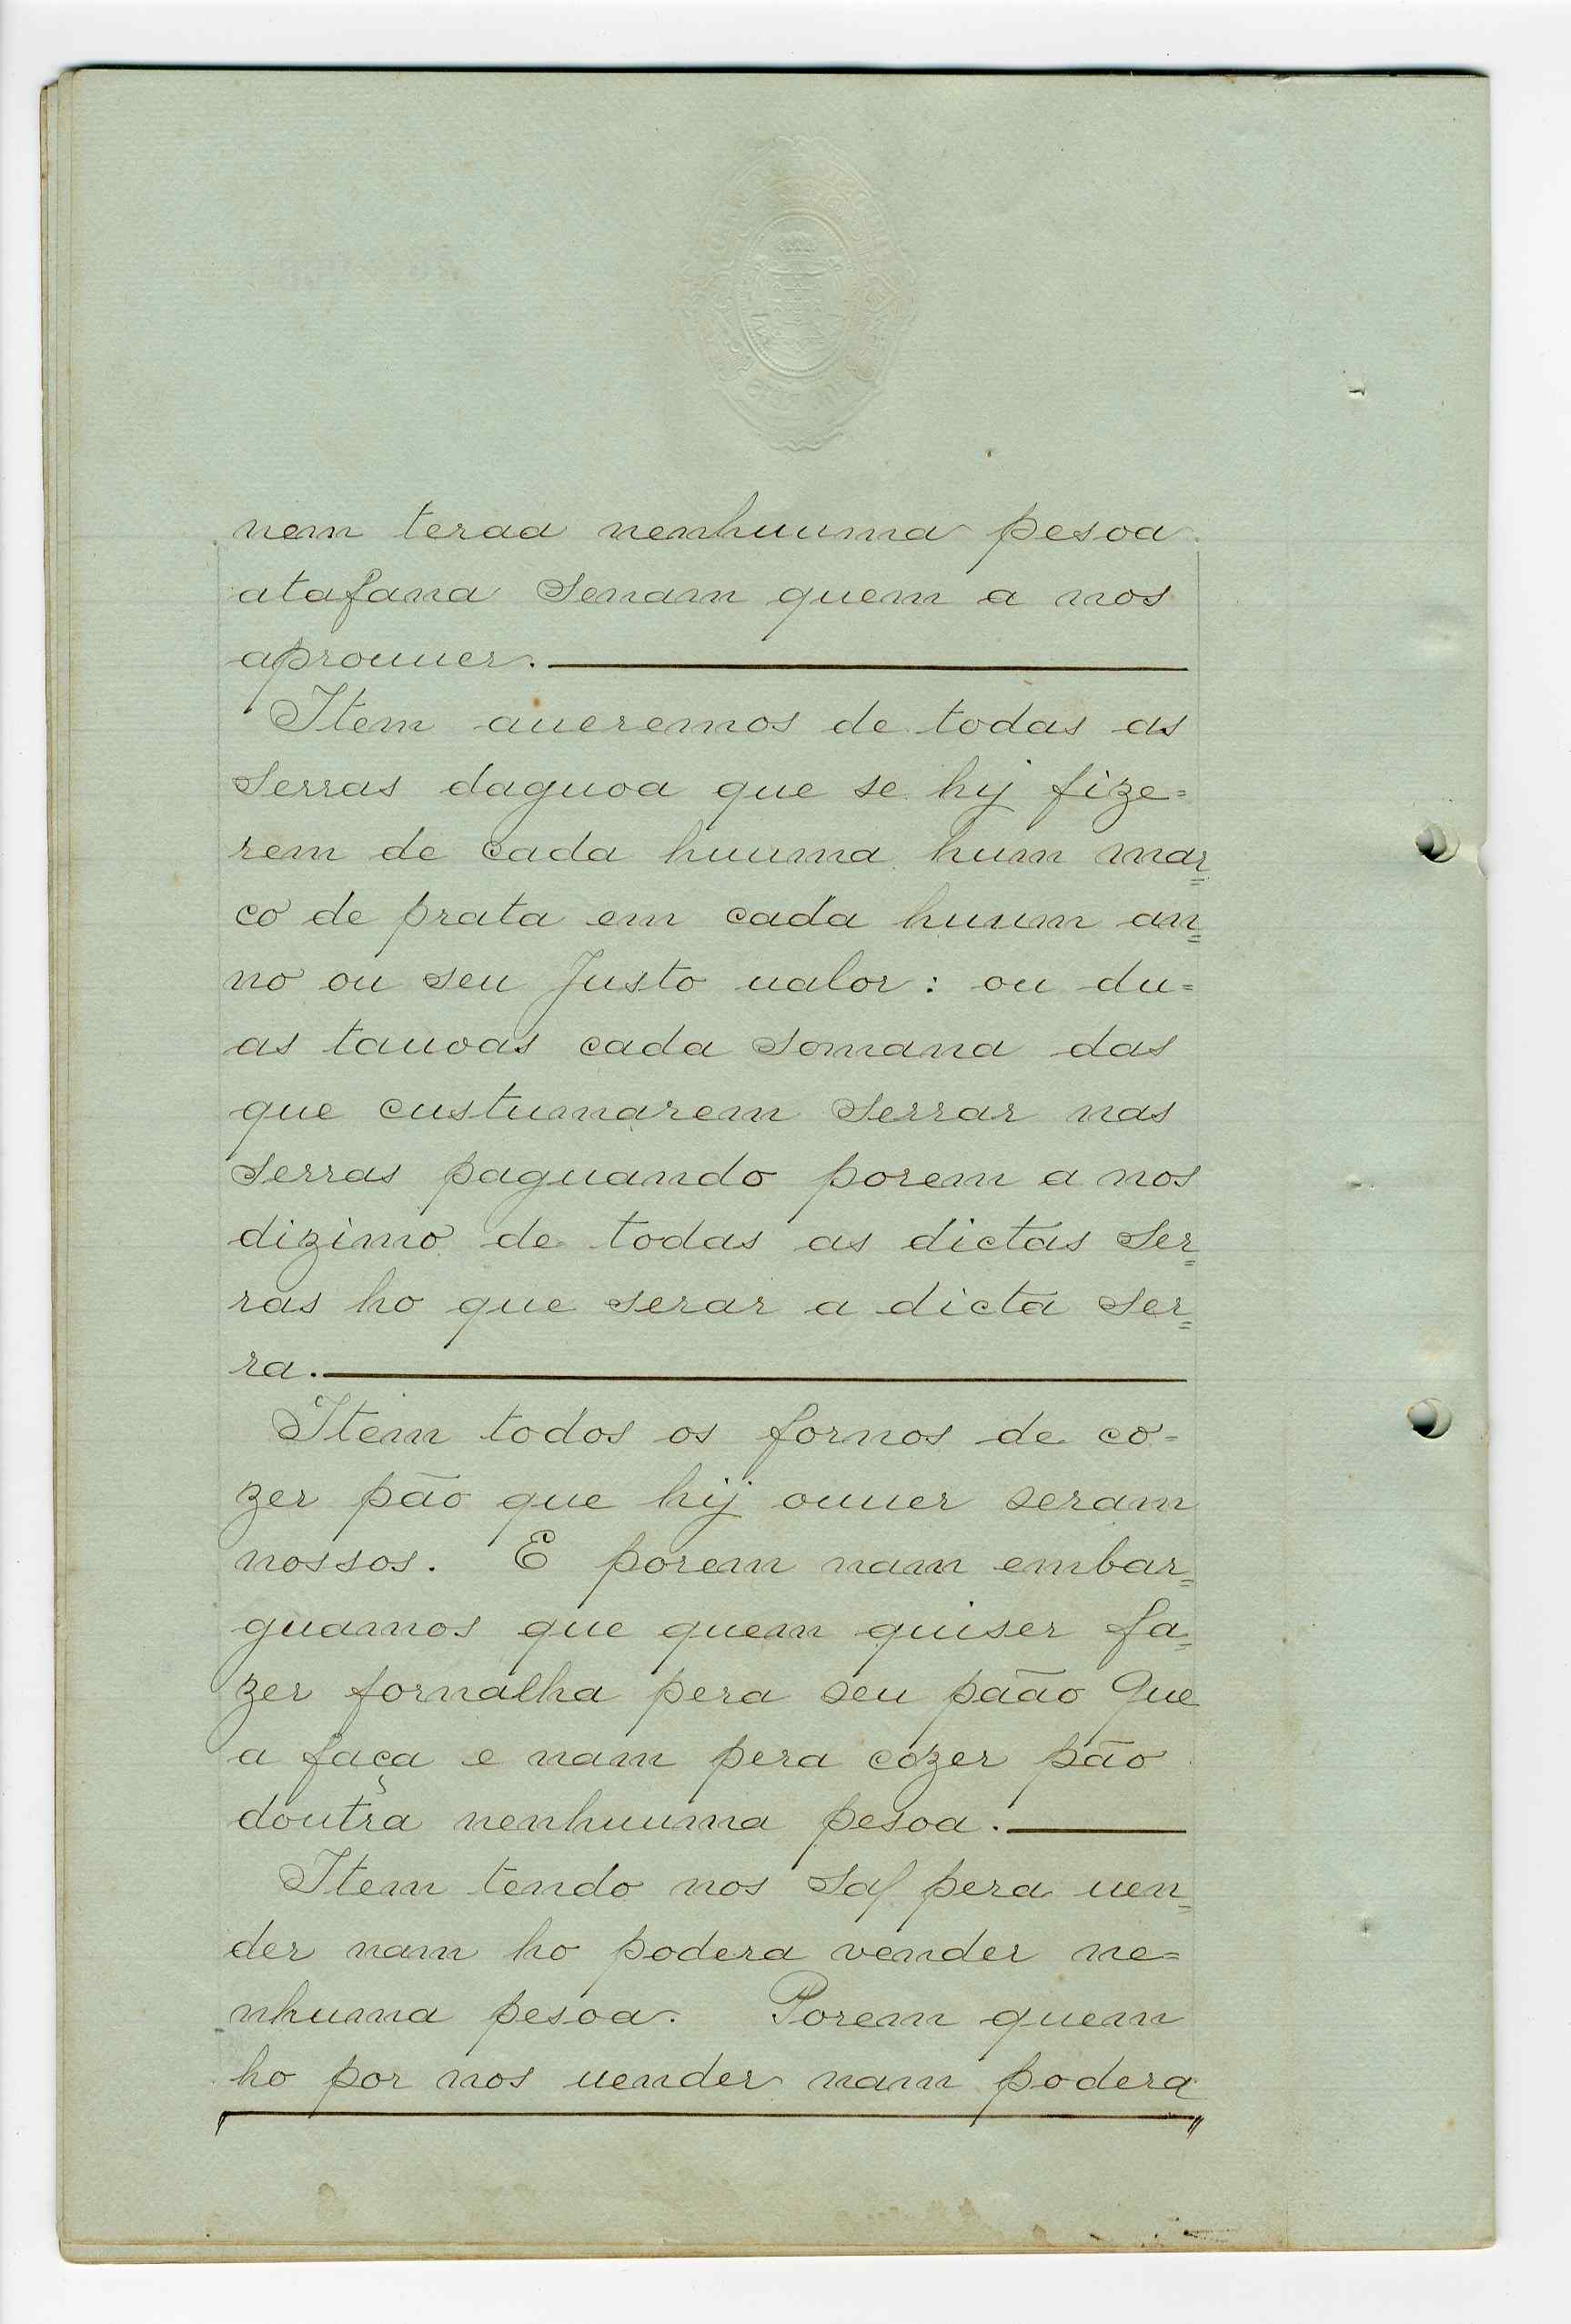 nem teraa nenhuuma pesoa
atafana Senam quem a nos
aprouuer.
Item aueremos de todas as
Serras daguoa que se hij fize=
rem de cada huuma hum mar=
co de prata em cada huum an=
no ou seu Justo ualor: ou du=
as tauoas cada Somana das
que custumarem Serrar nas
Serras paguando porem a nos
dizimo de todas as dictas Ser=
ras ho que serar a dicta Ser=
ra.
Item todos os fornos de co=
zer pão que hij ouuer seram
nossos. E porem nam embar=
guamos que quem quiser fa=
zer fornalha pera seu pãão Que
a faça e nam pera cozer pão
doutra nenhuuma pesoa.
Item tendo nos Sal pera uen=
der nam ho podera vender ne=
nhuma pesoa. Porem quem
ho por nos uender nam podera